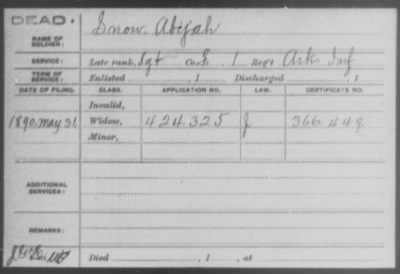 DEAD.
NAME OF SOLDIER: Snow, Abijah
SERVICE: Late rank, Sgt Co. E, 1 Reg't Ark Inf
TERM OF SERVICE: Enlisted , 1 Discharged , 1
DATE OF FILING. CLASS. APPLICATION NO. LAW. CERTIFICATE NO.
Invalid,
1890 May 31. Widow, 424.325 J 366.449
Minor,
ADDITIONAL SERVICES:
REMARKS:
Died , 1 , at